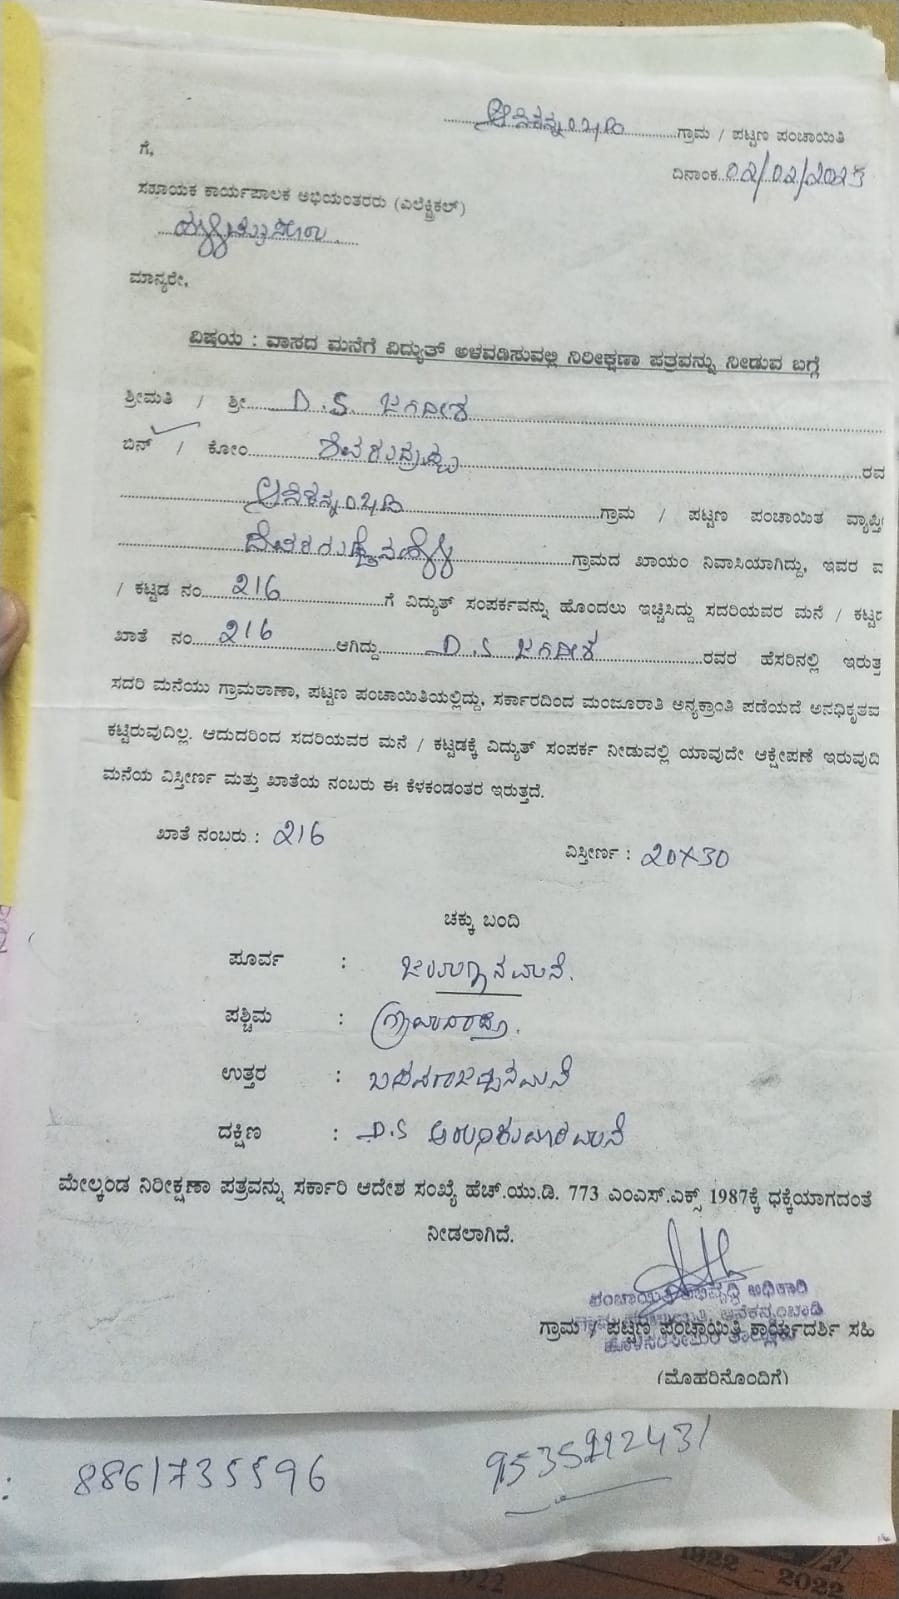 ಆನೆಕನ್ನಂಬಾಡಿ ಗ್ರಾಮ / ಪಟ್ಟಣ ಪಂಚಾಯಿತಿ
ಗೆ,
ದಿನಾಂಕ 02/02/2025
ಸಹಾಯಕ ಕಾರ್ಯಪಾಲಕ ಅಭಿಯಂತರರು (ಎಲೆಕ್ಟ್ರಿಕಲ್)
ಮಾನ್ಯರೇ,
ವಿಷಯ : ವಾಸದ ಮನೆಗೆ ವಿದ್ಯುತ್ ಅಳವಡಿಸುವಲ್ಲಿ ನಿರೀಕ್ಷಣಾ ಪತ್ರವನ್ನು ನೀಡುವ ಬಗ್ಗೆ
ಶ್ರೀಮತಿ / ಶ್ರೀ D.S. ಜಗದೀಶ
ಬಿನ್ / ಕೋಂ ರವ
ಆನೆಕನ್ನಂಬಾಡಿ ಗ್ರಾಮ / ಪಟ್ಟಣ ಪಂಚಾಯಿತ ವ್ಯಾಪ್ತಿ
ಗ್ರಾಮದ ಖಾಯಂ ನಿವಾಸಿಯಾಗಿದ್ದು, ಇವರ ಮ
/ ಕಟ್ಟಡ ನಂ 216 ಗೆ ವಿದ್ಯುತ್ ಸಂಪರ್ಕವನ್ನು ಹೊಂದಲು ಇಚ್ಚಿಸಿದ್ದು ಸದರಿಯವರ ಮನೆ / ಕಟ್ಟಡ
ಖಾತೆ ನಂ 216 ಆಗಿದ್ದು D.S ಜಗದೀಶ ರವರ ಹೆಸರಿನಲ್ಲಿ ಇರುತ್ತ
ಸದರಿ ಮನೆಯು ಗ್ರಾಮಠಾಣಾ, ಪಟ್ಟಣ ಪಂಚಾಯಿತಿಯಲ್ಲಿದ್ದು, ಸರ್ಕಾರದಿಂದ ಮಂಜೂರಾತಿ ಅನ್ಯಕ್ರಾಂತಿ ಪಡೆಯದೆ ಅನಧಿಕೃತವ
ಕಟ್ಟಿರುವುದಿಲ್ಲ. ಆದುದರಿಂದ ಸದರಿಯವರ ಮನೆ / ಕಟ್ಟಡಕ್ಕೆ ವಿದ್ಯುತ್ ಸಂಪರ್ಕ ನೀಡುವಲ್ಲಿ ಯಾವುದೇ ಆಕ್ಷೇಪಣೆ ಇರುವುದಿ
ಮನೆಯ ವಿಸ್ತೀರ್ಣ ಮತ್ತು ಖಾತೆಯ ನಂಬರು ಈ ಕೆಳಕಂಡಂತರ ಇರುತ್ತದೆ.
ಖಾತೆ ನಂಬರು : 216
ವಿಸ್ತೀರ್ಣ : 20X30
ಚಕ್ಕು ಬಂದಿ
ಪೂರ್ವ :
ಪಶ್ಚಿಮ :
ಉತ್ತರ :
ದಕ್ಷಿಣ : D.S
ಮೇಲ್ಕಂಡ ನಿರೀಕ್ಷಣಾ ಪತ್ರವನ್ನು ಸರ್ಕಾರಿ ಆದೇಶ ಸಂಖ್ಯೆ ಹೆಚ್.ಯು.ಡಿ. 773 ಎಂಎಸ್.ಎಕ್ಸ್ 1987ಕ್ಕೆ ಧಕ್ಕೆಯಾಗದಂತೆ
ನೀಡಲಾಗಿದೆ.
ಪಂಚಾಯಿತಿ ಅಭಿವೃದ್ಧಿ ಅಧಿಕಾರಿ
ಗ್ರಾಮ / ಪಟ್ಟಣ ಪಂಚಾಯಿತಿ ಕಾರ್ಯದರ್ಶಿ ಸಹಿ
(ಮೊಹರಿನೊಂದಿಗೆ)
8861735596
9535212431
1922
1922 - 2022